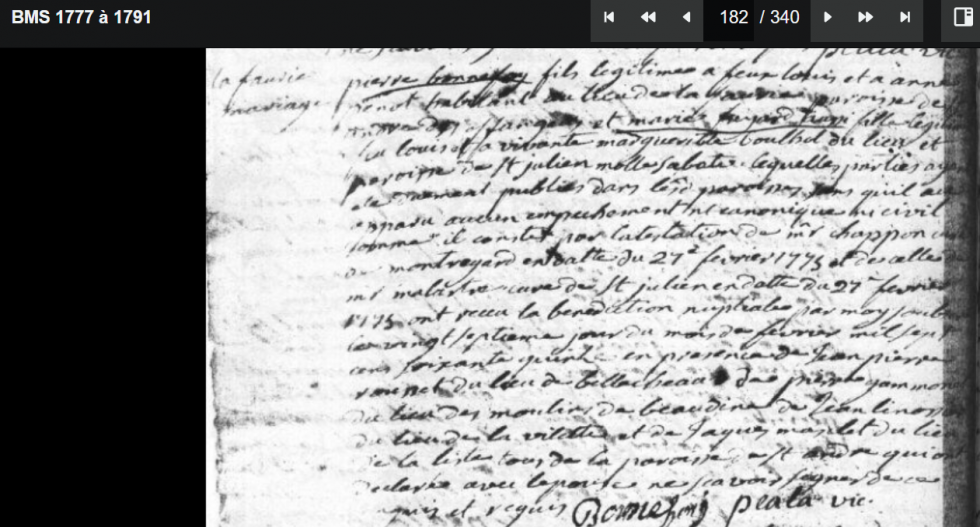 BMS 1777 à 1791
182 / 340
la faurie
mariage
pierre bonnefoy fils legitime a feux louis et a anne
habitant du lieu de la faurie paroisse de
et marie fayard aussi fille legitime
louis et a vivante marguerite boulhol du lieu et
paroisse de st julien molhesabate lequelles parties ayant
ete duement publies dans lesd paroisses sans quil aye
apparu aucun empechement ni canonique ni civil
comme il conste par latestation de mr chappon curé
de montregard en datte du 27e fevrier 1775 et de celle de
mr malartre curé de st julien en datte du 27e fevrier
1775 ont recu la benediction nuptiale par moy soub
ce vingt septieme jour du mois de fevrier mil sept
cens soixante quinze en presence de Jean pierre
rouset du lieu de de pierre gammond
du lieu des moulins de beaudiné de Jean linossier
du lieu de la vilette et de Jaques du lieu
de la tous de la paroisse de st andré qui ont
declaré avec lepouse ne scavoir signer de ce
requis Bonnefoy peala vic.